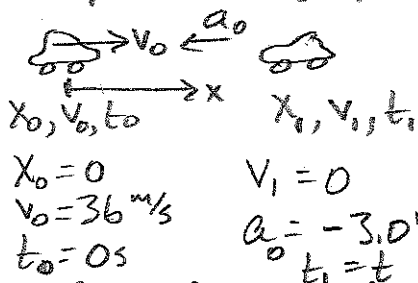 v₀ a₀
x
x₀, v₀, t₀ x₁, v₁, t₁
x₀ = 0 v₁ = 0
v₀ = 36 m/s a₀ = -3.0
t₀ = 0s t₁ = t